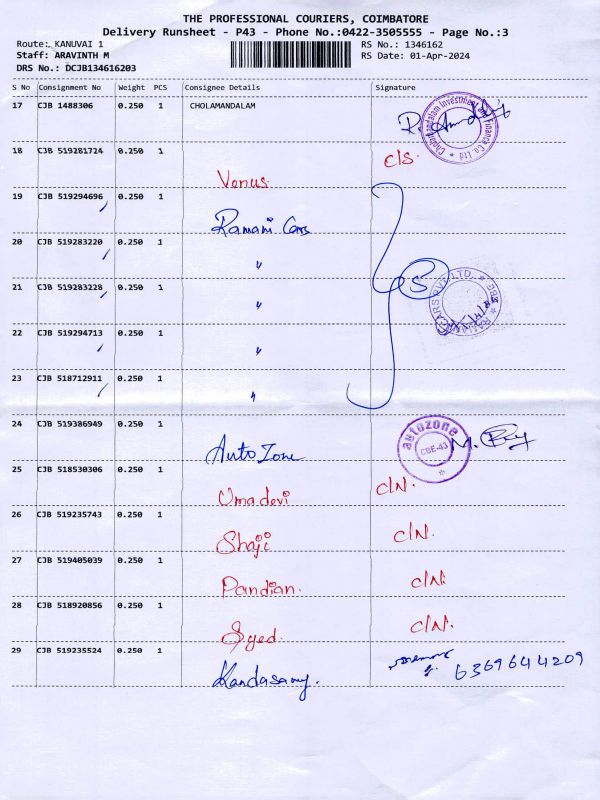 THE PROFESSIONAL COURIERS, COIMBATORE
Delivery Runsheet - P43 - Phone No.:0422-3505555 - Page No.:3
Route: KANUVAI 1 RS No.: 1346162
Staff: ARAVINTH M RS Date: 01-Apr-2024
DRS No.: DCJB134616203
S No Consignment No Weight PCS Consignee Details Signature
17 CJB 1488306 0.250 1 CHOLAMANDALAM
Cholamandalam Investment and Finance Co. Ltd
18 CJB 519281724 0.250 1 Venus C/S.
19 CJB 519294696 0.250 1 Ramani Cars
20 CJB 519283220 0.250 1 "
21 CJB 519283228 0.250 1 " 5
CARS PVT. LTD.
22 CJB 519294713 0.250 1 "
23 CJB 518712911 0.250 1 "
24 CJB 519386949 0.250 1 Auto Zone
autozone
CBE-43
25 CJB 518530306 0.250 1 Umadevi C/N.
26 CJB 519235743 0.250 1 Shaji C/N.
27 CJB 519405039 0.250 1 Pandian. C/N.
28 CJB 518920856 0.250 1 Syed. C/N.
29 CJB 519235524 0.250 1 Kandasamy. 6369644209